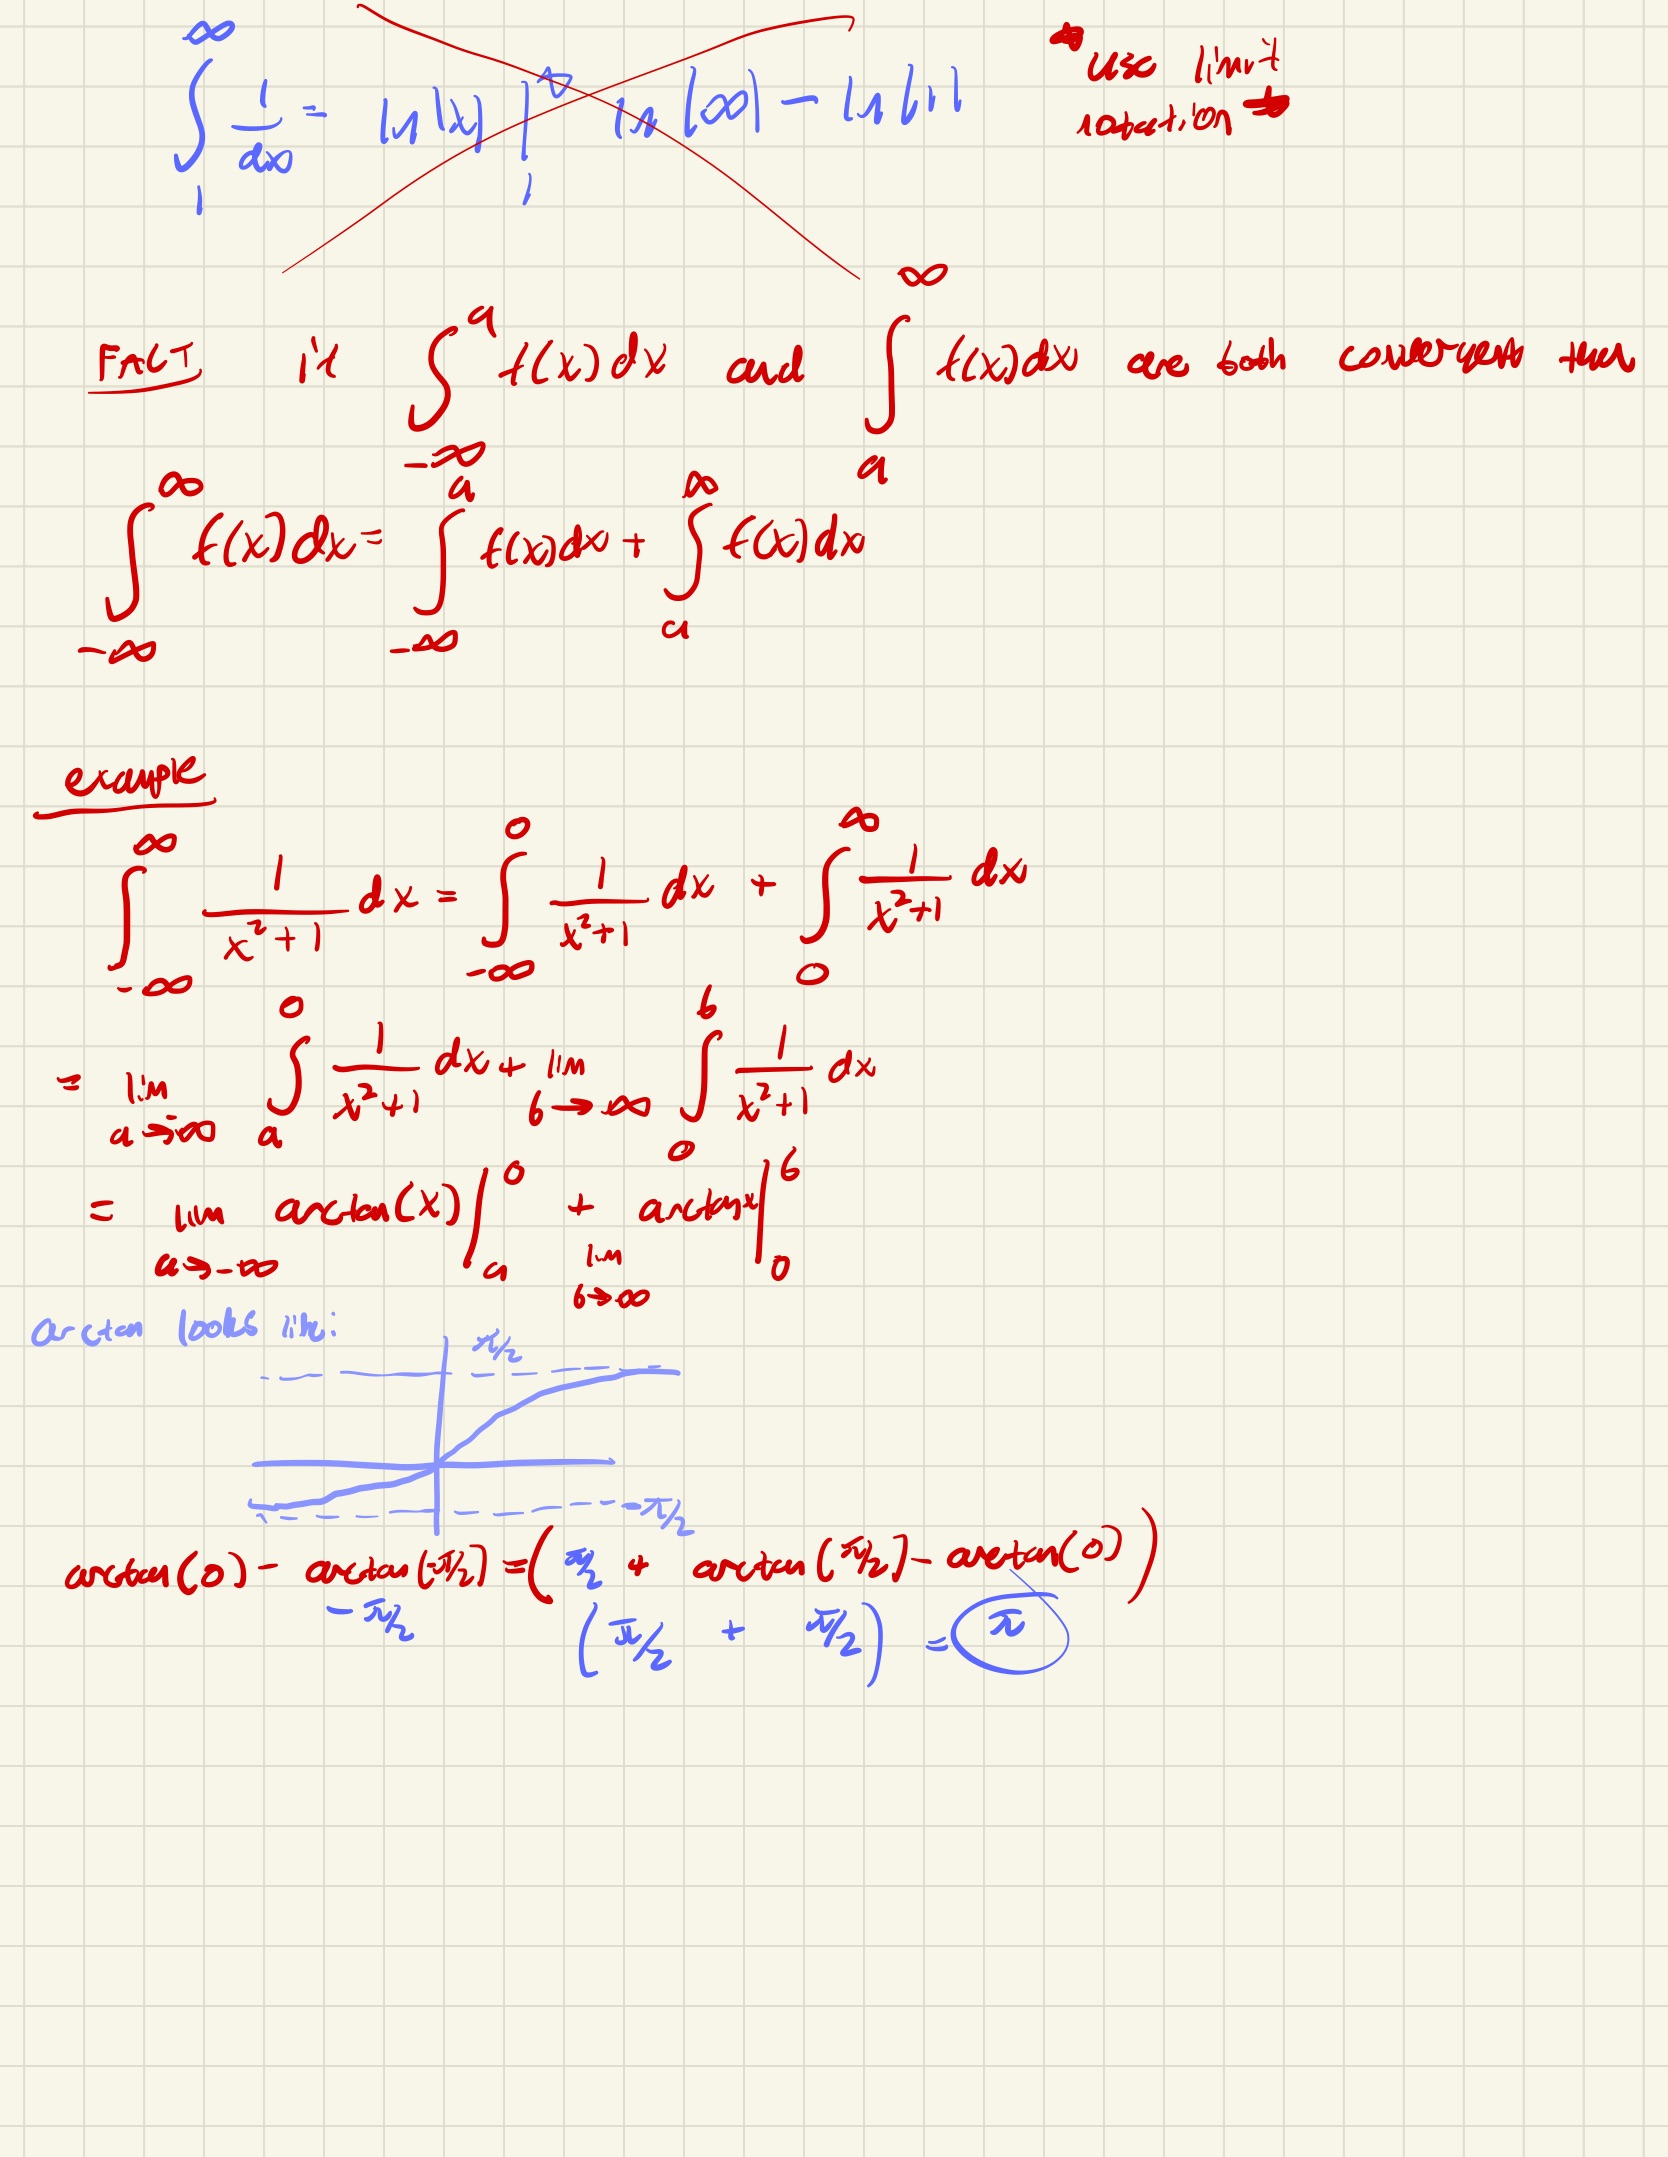 ∫₁^∞ 1/dx = ln|x| |₁^∞ ln|∞| - ln|1|
* use limit
notation *
FACT if ∫_{-∞}^a f(x)dx and ∫_a^∞ f(x)dx are both convergent then
∫_{-∞}^∞ f(x)dx = ∫_{-∞}^a f(x)dx + ∫_a^∞ f(x)dx
example
∫_{-∞}^∞ 1/(x²+1) dx = ∫_{-∞}^0 1/(x²+1) dx + ∫_0^∞ 1/(x²+1) dx
= lim a→-∞ ∫_a^0 1/(x²+1) dx + lim b→∞ ∫_0^b 1/(x²+1) dx
= lim a→-∞ arctan(x) |_a^0 + lim b→∞ arctan x |_0^b
arctan looks like:
π/2
-π/2
arctan(0) - arctan(-π/2) = (π/2 + arctan(π/2) - arctan(0))
-π/2 (π/2 + π/2) = π